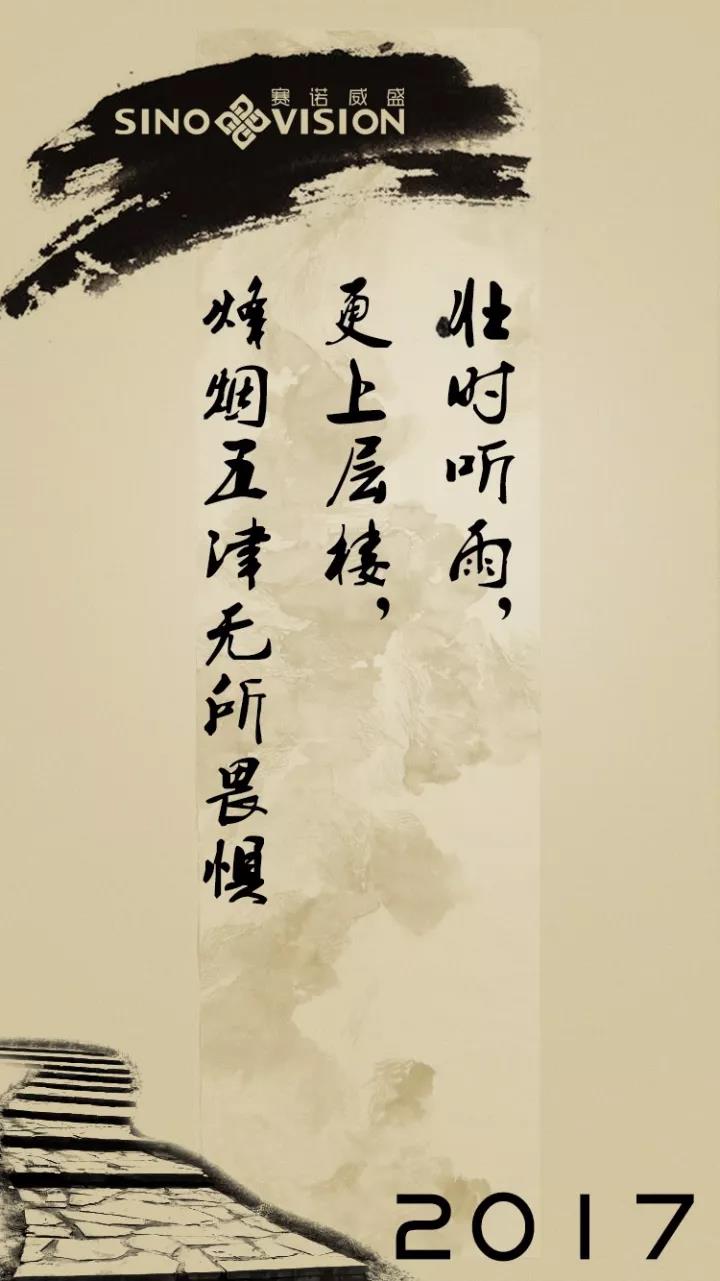 赛诺威盛
SINO VISION
壮时听雨，
更上层楼，
烽烟五津无所畏惧
2017